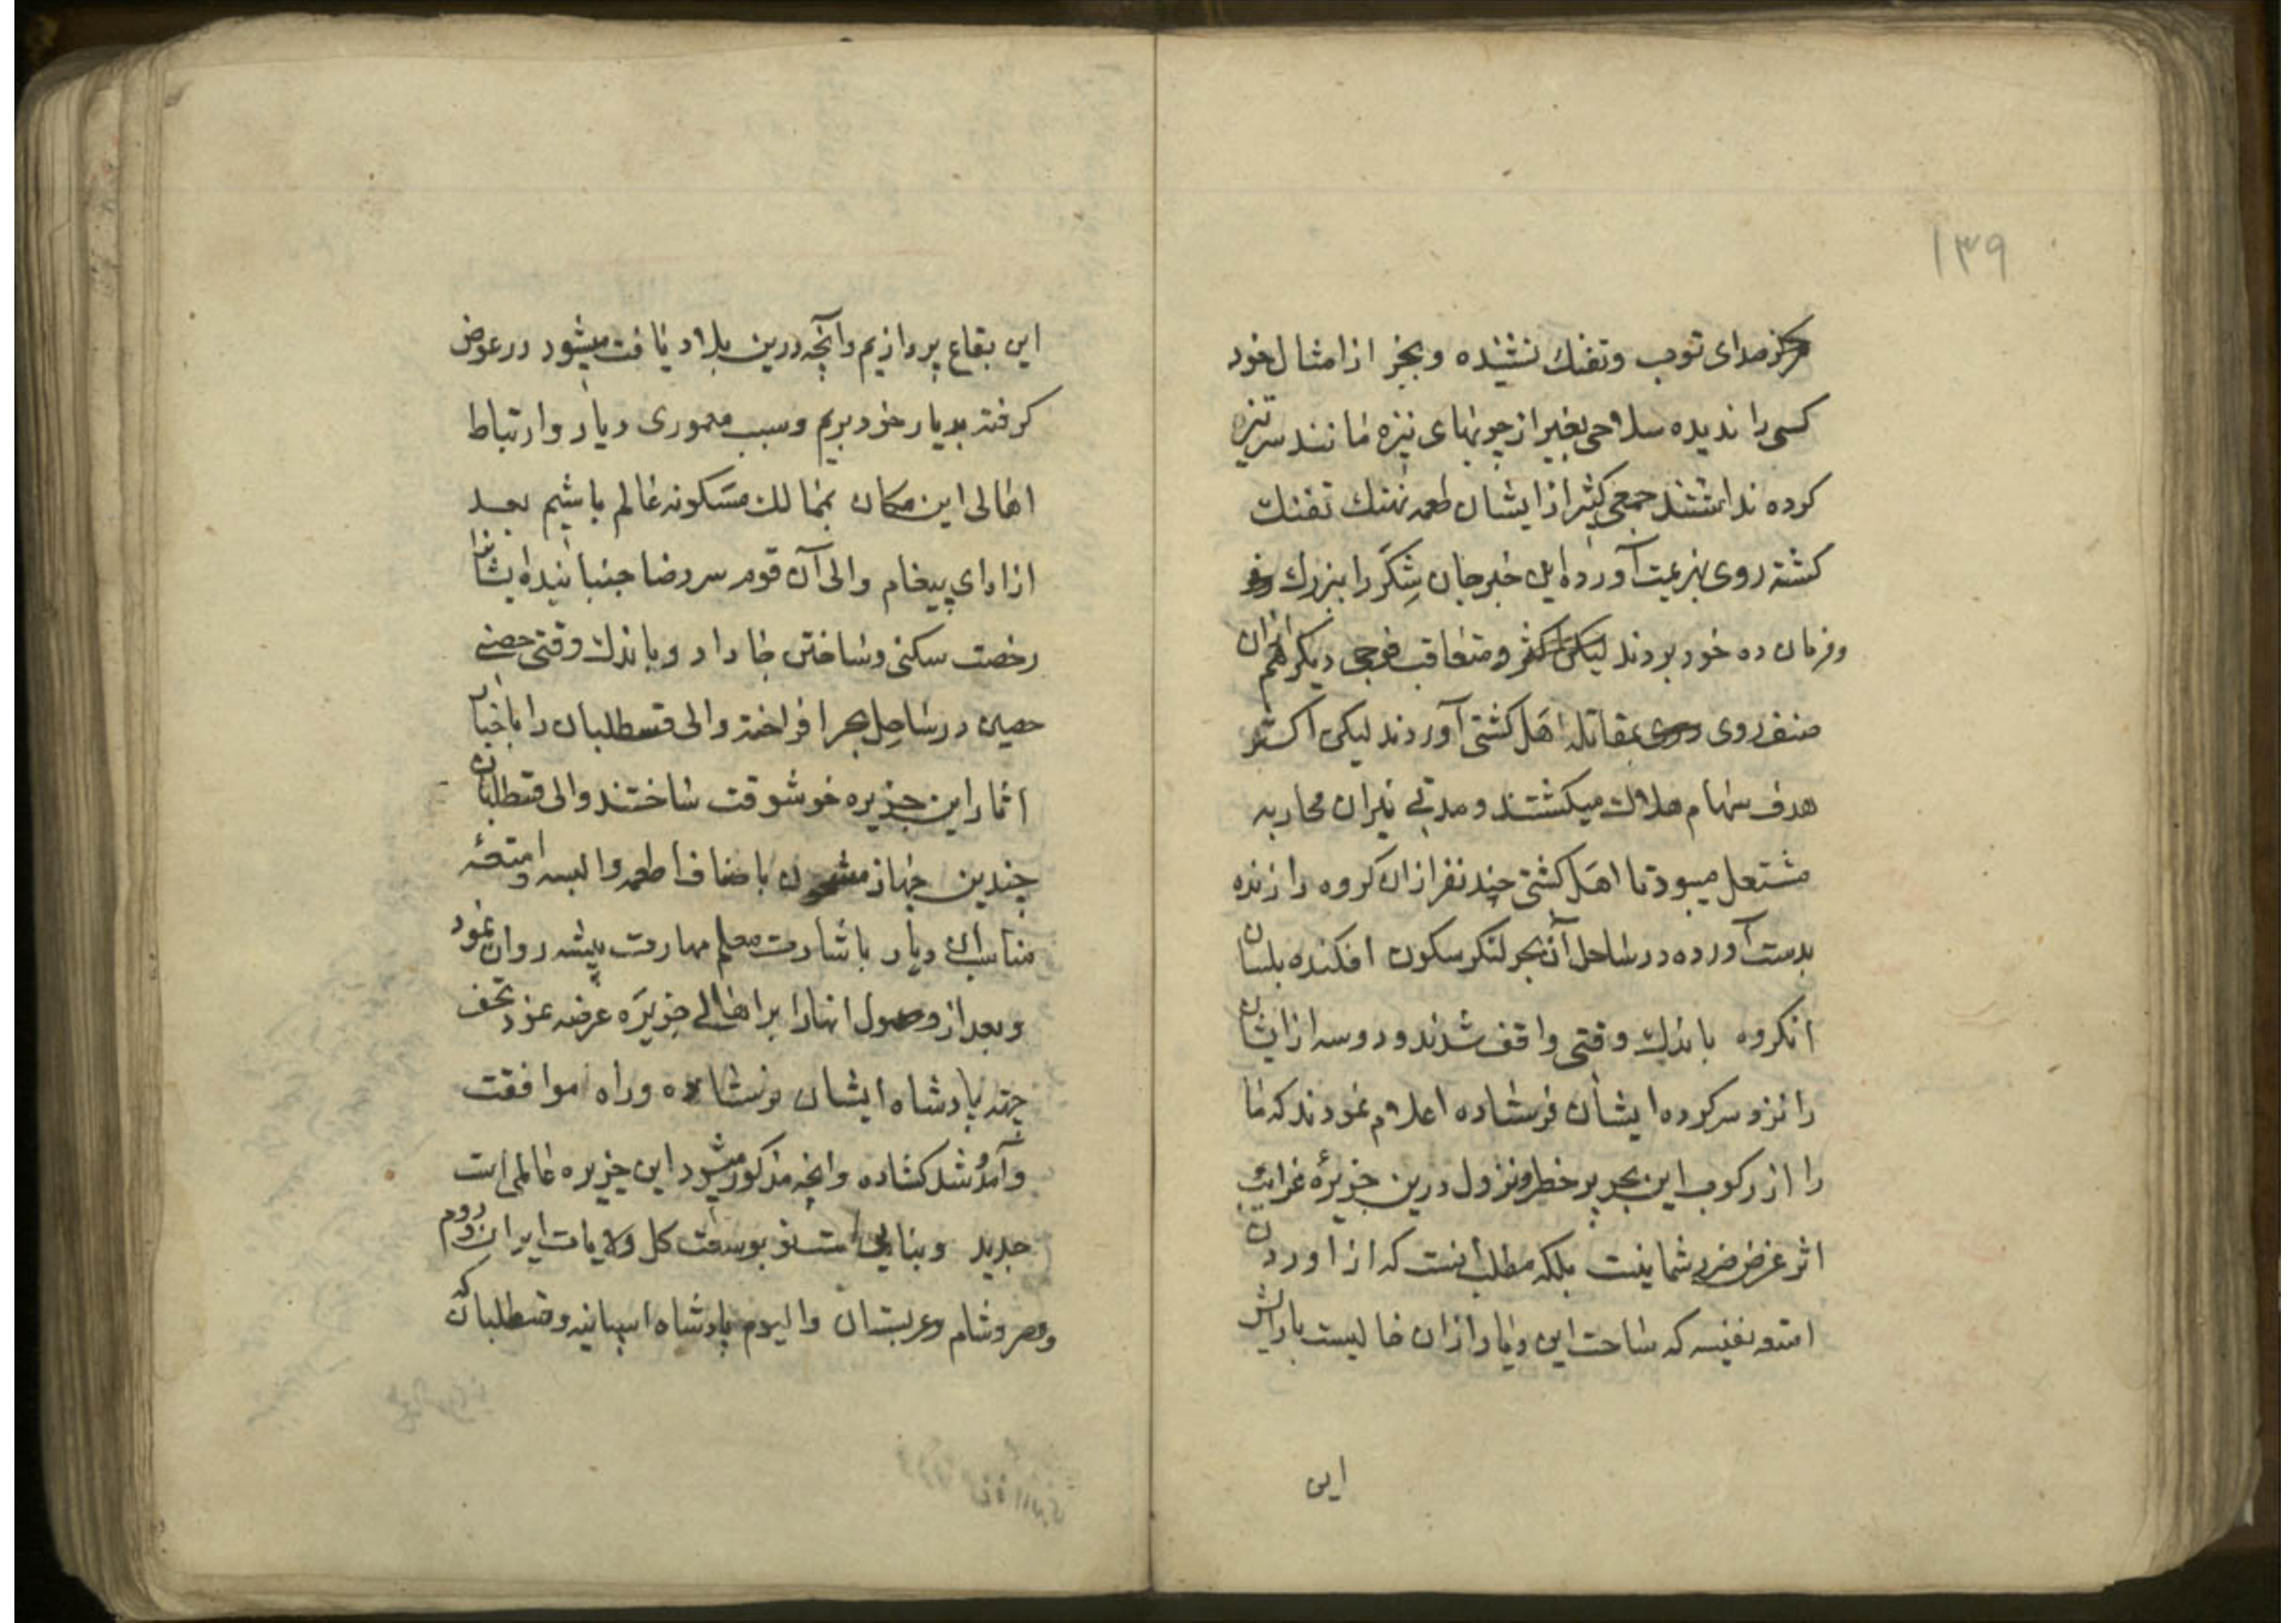 ۱۳۹
هرگز صدای توپ وتفنك نشنیده وبجز از امثال خود
کسی را ندیده سلاحی بغیر از چوبهای نیزه مانند سر تیز
کرده نداشتند جمعی کثیر از ایشان طعمه نهنك تفنك
کشته روی بهزیمت آورده این خبر جان شکر را ببزرك
وفرمان ده خود بردند ومتعاقب فوجی دیکر هم ازان
صنف روی بمقاتله اهل کشتی آوردند لیکن اکثر
هدف سهام هلاك میکشتند ومدتی نیران محاربه
مشتعل میبود تا اهل کشتی چند نفر ازان کروه را زنده
بدست آورده در ساحل آن بحر لنکر سکون افکنده بلسان
انکروه باندك وقتی واقف شدند ودوسه از ایشان
را نزد سرکرده ایشان فرستاده اعلام نمودند که ما
را از رکوب این بحر پر خطر ونزول درین جزیرهٔ غرایب
اثر غرض ضرر شما نیست بلکه مطلب انست که از اوردن
امتعه نفیسه که ساحت این دیار ازان خالیست
این
این بقاع پردازیم وآنچه درین بلاد یافت میشود در عوض
کرفته بدیار خود بریم وسبب معموری دیار وارتباط
اهالی این مکان بممالك مسکونه عالم باشیم بعد
از ادای پیغام والی آن قوم سر رضا جنبانیده ایشانرا
رخصت سکنی وساختن جا داد وباندك وقتی حصنی
حصین در ساحل بحر افراخته والی قسطلبان را باخبار
اثمار این جزیره خوشوقت ساختند والی قسطلبان
چندین جهاز مشحون باصناف اطعمه والبسه وامتعهٔ
مناسب ان دیار باشارت معلم مهارت پیشه روان نمود
وبعد از وصول انهارا بر اهالی جزیره عرضه نمود تحف
جهته پادشاه ایشان فرستاده وراه موافقت
وآمد وشد کشاده وانچه مذکور میشود این جزیره عالمی است
جدید وبنایی است نو بوسعت کل ولایات ایران وروم
ومصر وشام وعربستان والیوم پادشاه اسپانیه وقسطلبان که